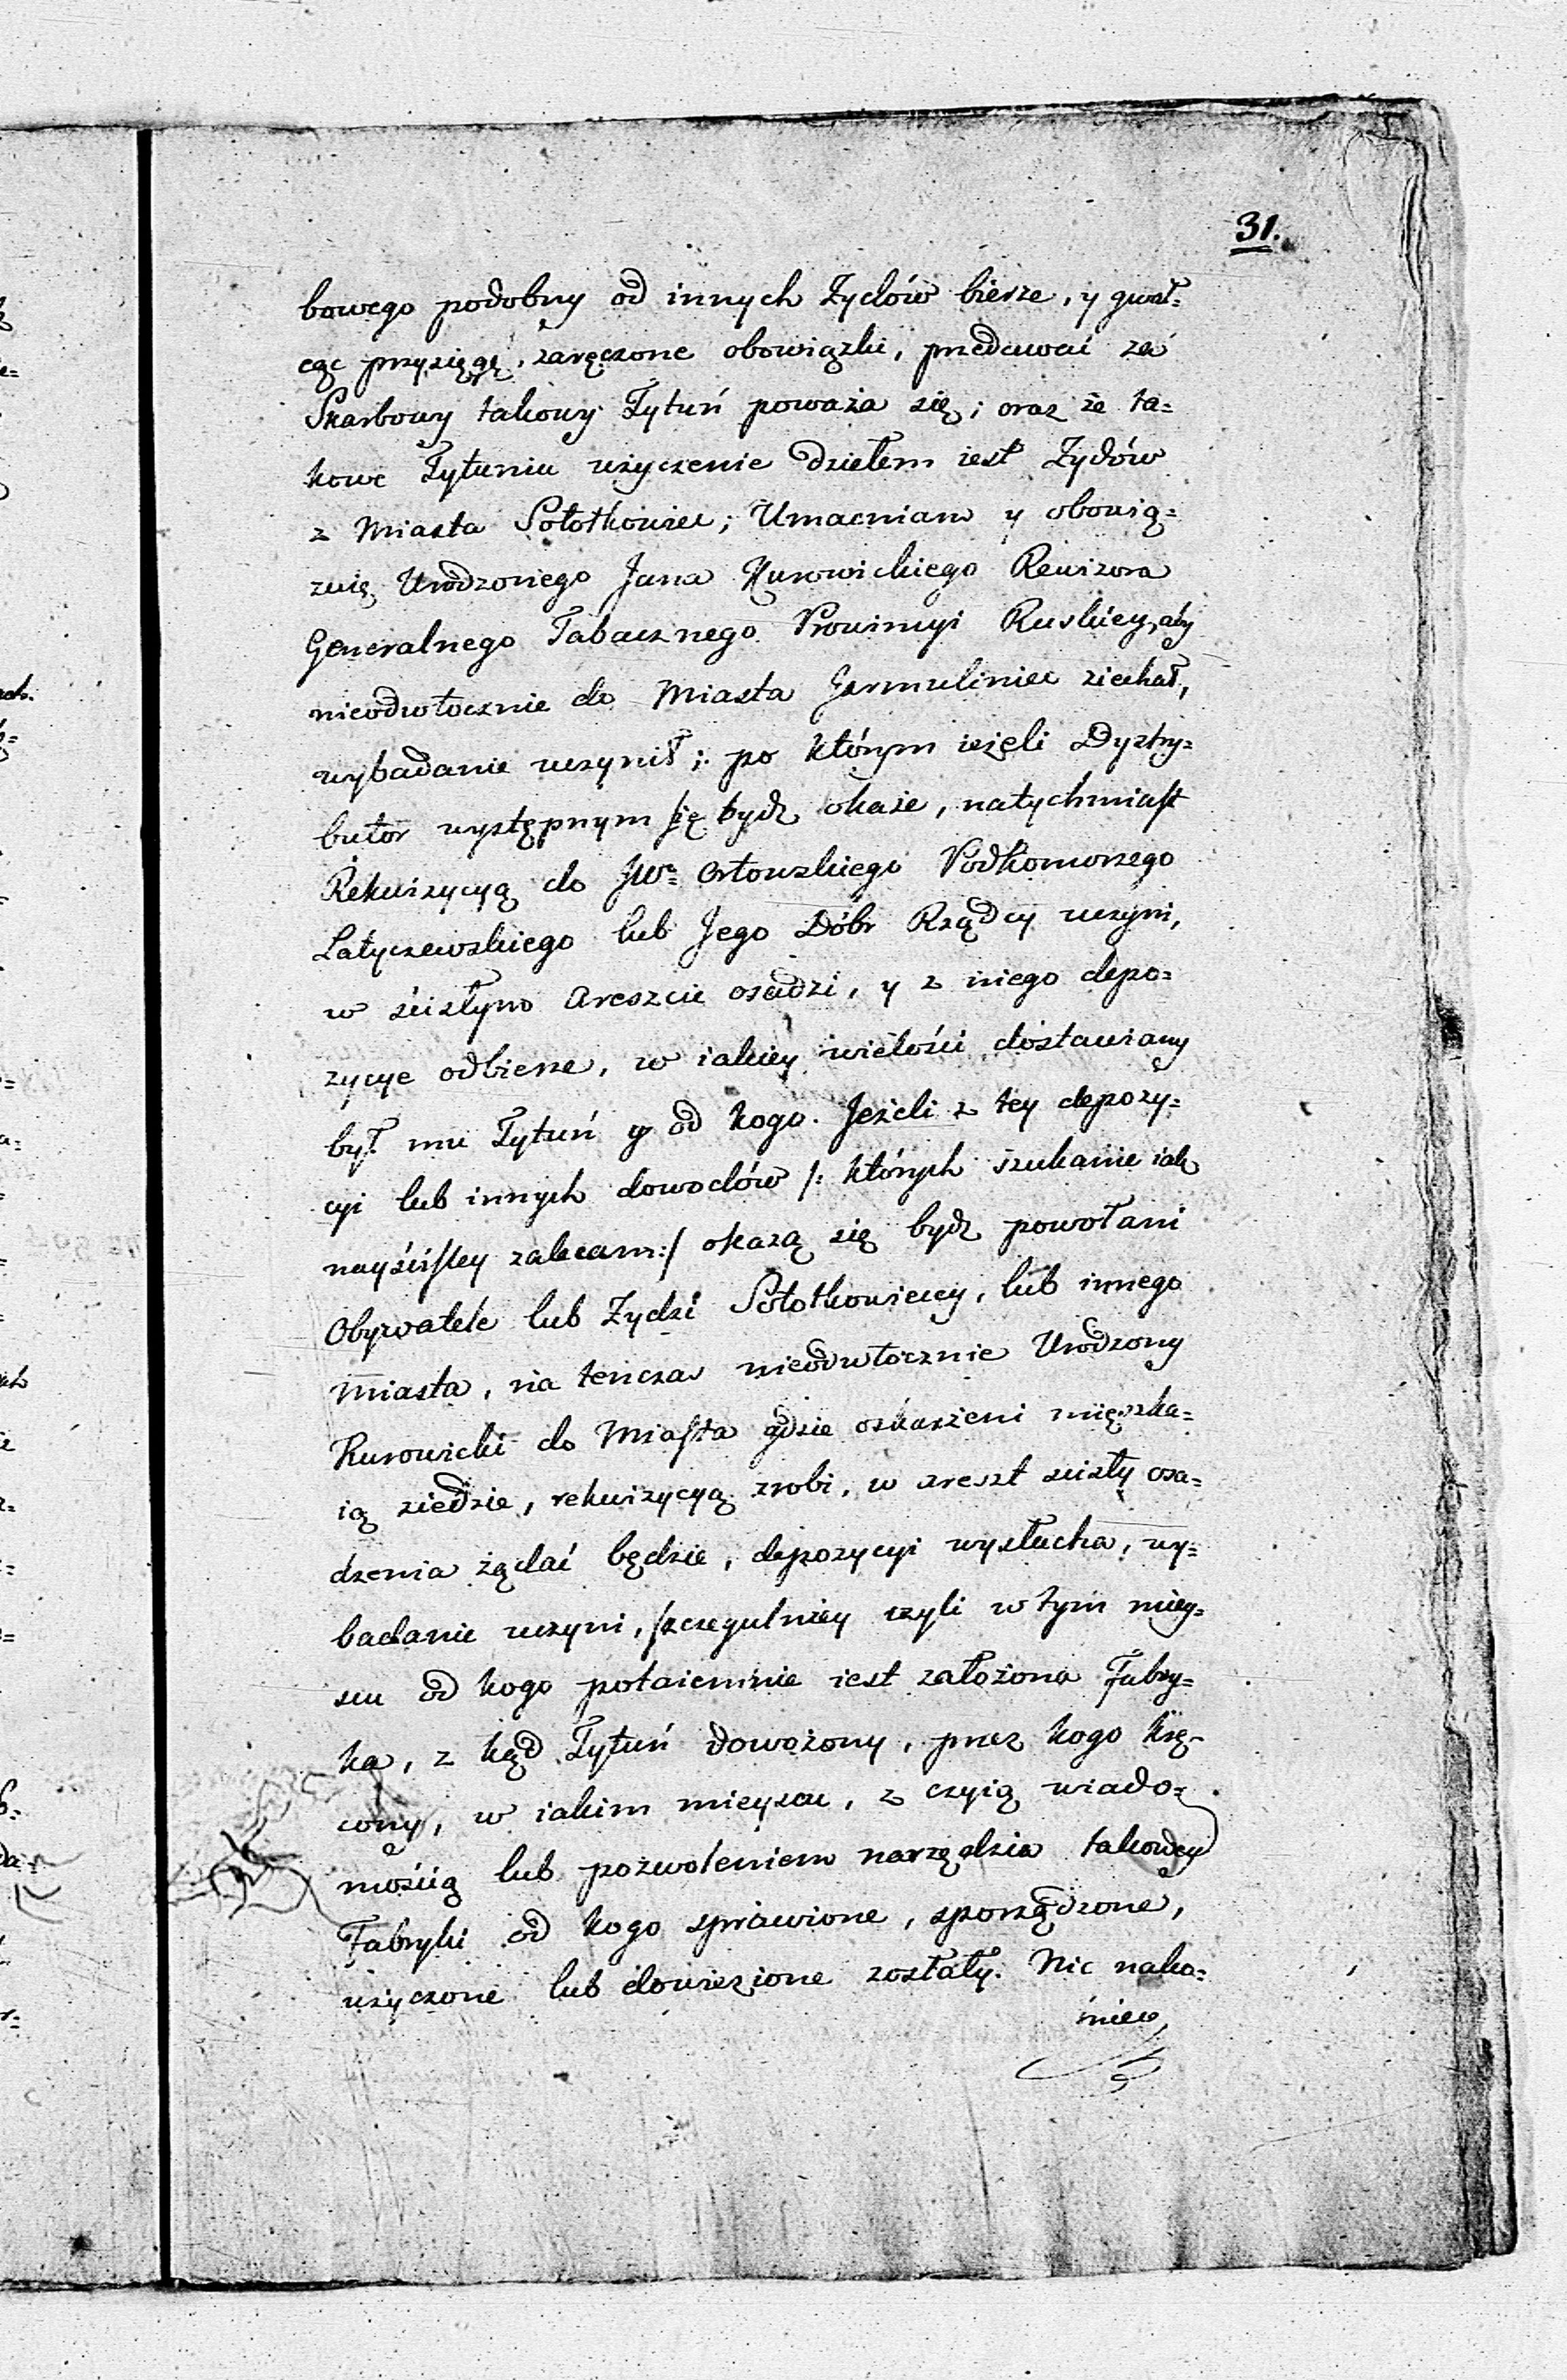 31.
bowego podobny od innych Zydów bierze, y gwał=
cąc przysięgę, zaręczone obowiązki, przedawać za
Skarbowy takowy Tytuń poważa się; oraz że ta=
kowe Tytuniu użyczenie dziełem iest Zydów
z Miasta Sołotkowiec; Umacniam y obowią=
zuię Urodzonego Jana Kurowickiego Rewizora
Generalnego Tabacznego Prowincyi Ruskiey, aby
nieodwłocznie do Miasta Jarmuliniec ziechał,
wybadanie uczynił; po którym ieżeli Dystry=
butor występnym się bydź okaże, natychmiast
Rekwizycyą do JWo Orłowskiego Podkomorzego
Latyczewskiego lub Jego Dóbr Rządcy uczyni,
w ścisłym Areszcie osadzi, y z niego depo=
zycye odbierze, w iakiey wielości dostawiany
był mu Tytuń y od kogo. Jeżeli z tey depozy=
cyi lub innych dowodów /: których szukanie iak
nayściśley zalecam :/ okażą się bydź powołani
Obywatele lub Zydzi Sołotkowieccy, lub innego
Miasta, na tenczas nieodwłocznie Urodzony
Kurowicki do Miasta gdzie oskarżeni mięszka=
ią ziedzie, rekwizycyą zrobi, w areszt ścisły osa=
dzenia żądać będzie, depozycyi wysłucha, wy=
badanie uczyni, szczegulniey czyli w tym miey=
scu od kogo potaiemnie iest założona Fabry=
ka, z kąd Tytuń dowożony, przez kogo krę=
cony, w iakim mieyscu, z czyią wiado=
mością lub pozwoleniem narzędzia takowey
Fabryki od kogo sprawione, sporządzone,
użyczone lub dowiezione zostały. Nic naka=
niec